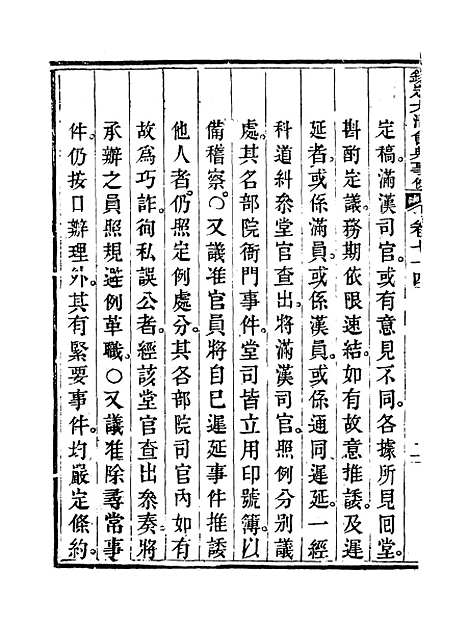 欽定大清會典事例 卷七十四 二
定稿。滿漢司官。或有意見不同。各據所見回堂。
斟酌定議。務期依限速結。如有故意推諉。及遲
延者。或係滿員。或係漢員。或係通同遲延。一經
科道糾參。堂官查出。將滿漢司官。照例分別議
處。其各部院衙門事件。堂司皆立用印號簿。以
備稽察。○又議准官員將自己遲延事件推諉
他人者。仍照定例處分。其各部院司官內。如有
故為巧詐。徇私誤公者。經該堂官查出參奏。將
承辦之員。照規避例革職。○又議准。除尋常事
件。仍按口辦理外。其有緊要事件。均嚴定條約。